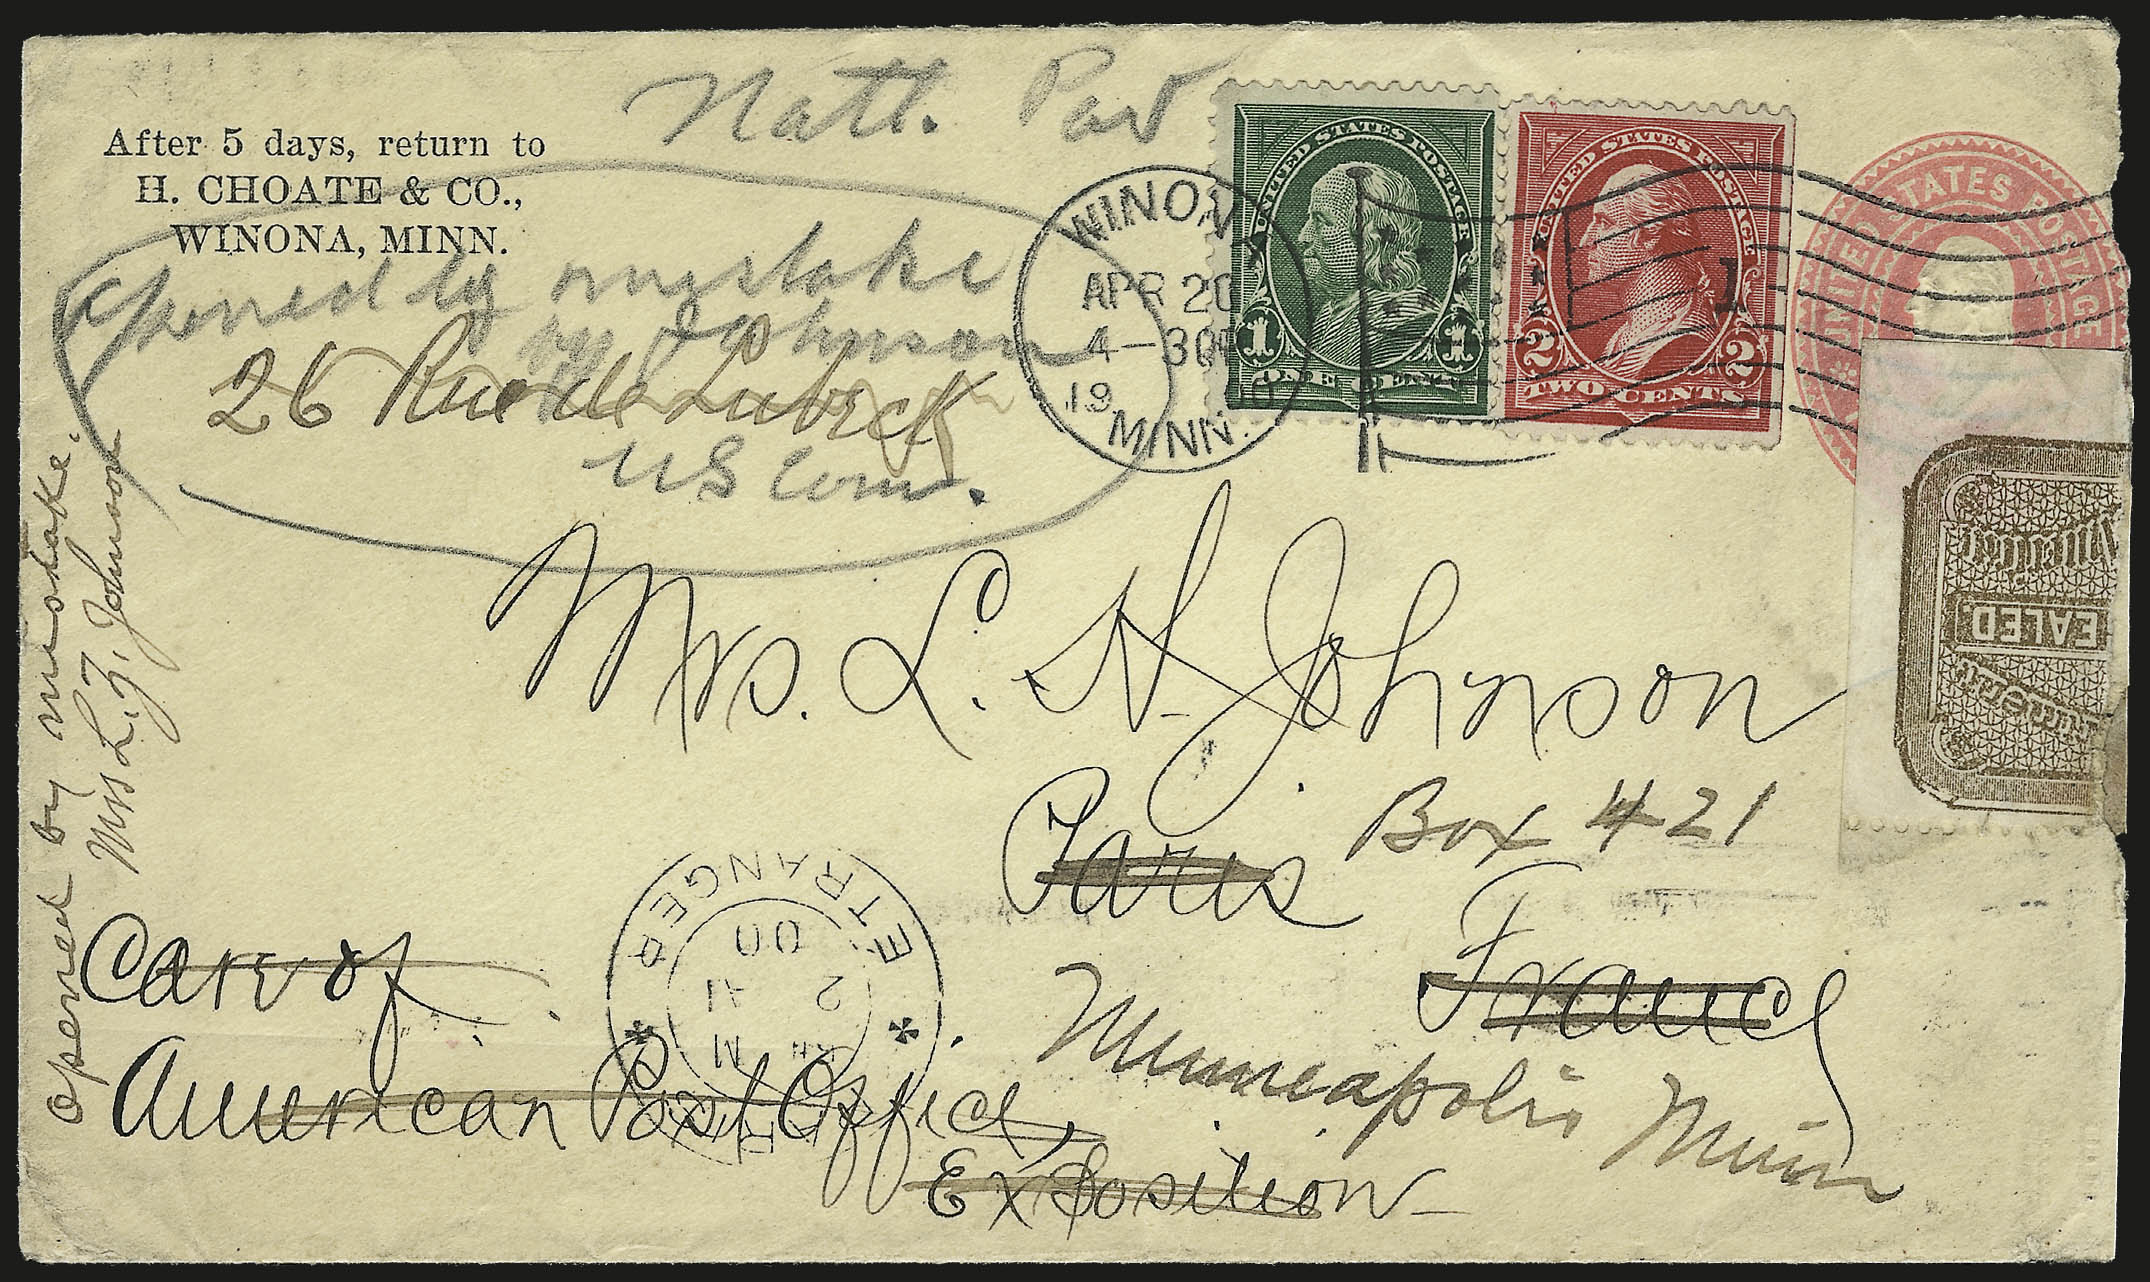 Natl. Pav
After 5 days, return to
H. CHOATE & CO.,
WINONA, MINN.
Opened by mistake
by Johnson
26 Rue de Lubeck
US Com.
WINONA
APR 20
4-30P
19
MINN.
UNITED STATES POSTAGE
1 1
ONE CENT
UNITED STATES POSTAGE
1
2 2
TWO CENTS
UNITED STATES POSTAGE
EALED.
Mrs. L. H. Johnson
Paris
Box 421
France
Minneapolis Minn
Care of
American Post Office,
Exposition
ETRANGER
2
00
Opened by mistake.
Mrs L. Z. Johnson